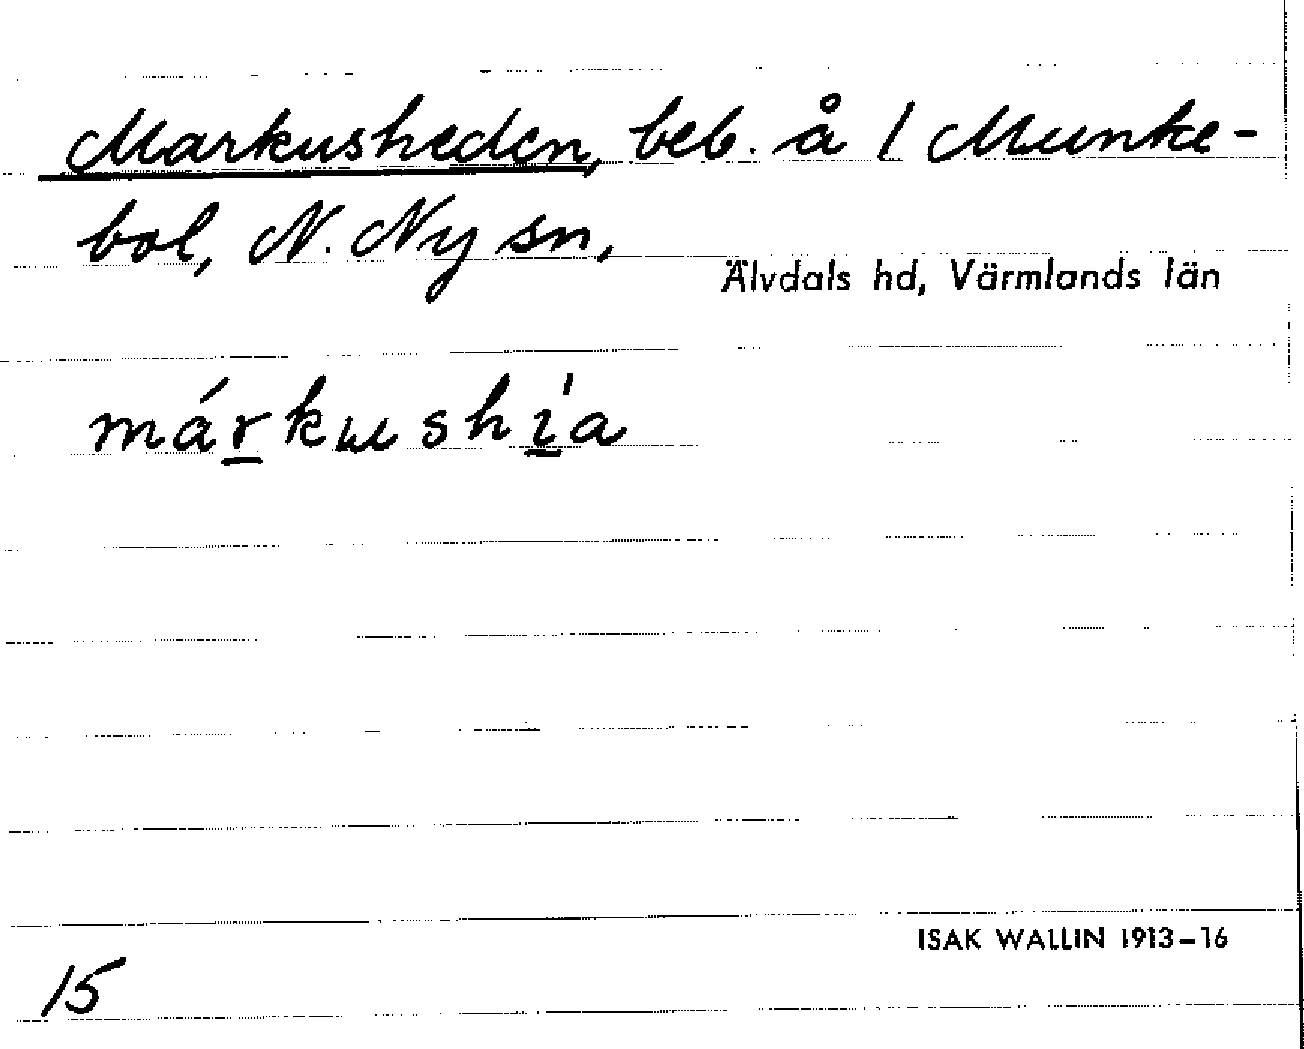 Markusheden, beb. å 1 Munke-
bol, N. Ny sn,
Älvdals hd, Värmlands län
márkɯshı̱́a
ISAK WALLIN 1913-16
15